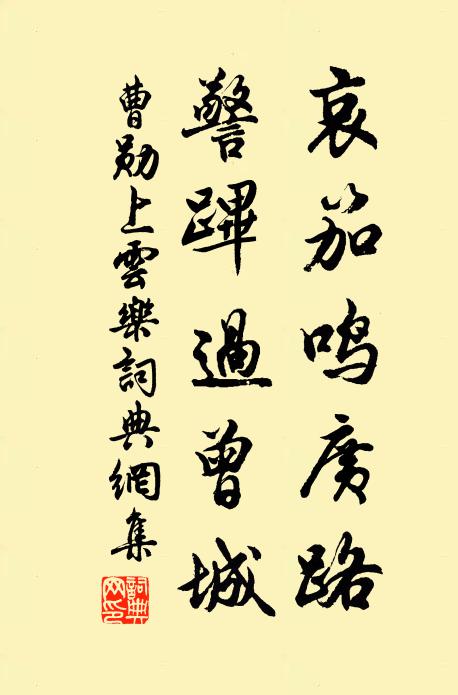 哀笳鳴廣路
警蹕過曾城
曹勛上雲樂詞典網集
詞典網印